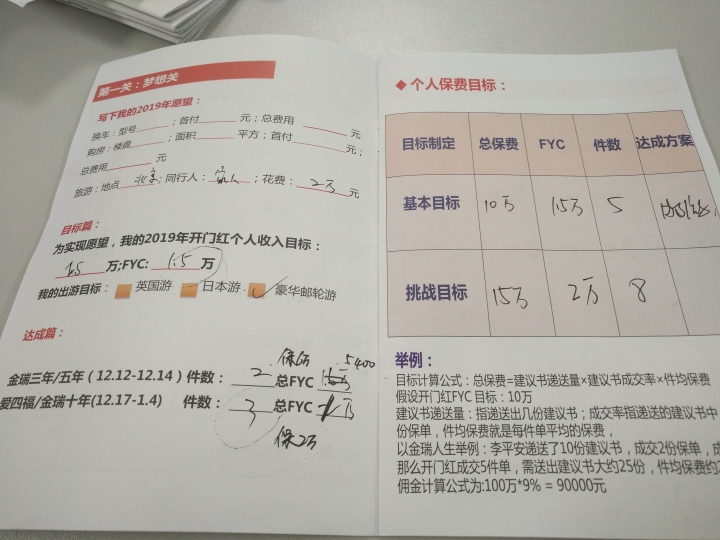 第一关：梦想关
写下我的2019年愿望：
换车：型号______；首付______元；总费用______元
购房：楼盘______；面积______平方；首付______元；
总费用______元
旅游：地点 北京；同行人：家人；花费：2万元
目标篇：
为实现愿望，我的2019年开门红个人收入目标：
1.5 万;FYC: 1.5 万
我的出游目标： 英国游 日本游 豪华邮轮游
达成篇：
保6万 5400
金瑞三年/五年（12.12-12.14）件数： 2 总FYC
爱四福/金瑞十年(12.17-1.4) 件数： 3 总FYC 1万
保2万
◆ 个人保费目标：
目标制定 总保费 FYC 件数 达成方案
基本目标 10万 1.5万 5
挑战目标 15万 2万 8
举例：
目标计算公式：总保费=建议书递送量×建议书成交率×件均保费
假设开门红FYC 目标：10万
建议书递送量：指递送出几份建议书；成交率指递送的建议书中
份保单，件均保费就是每件单平均的保费，
以金瑞人生举例：李平安递送了10份建议书，成交2份保单，成
那么开门红成交5件单，需送出建议书大约25份，件均保费约
佣金计算公式为:100万*9% = 90000元